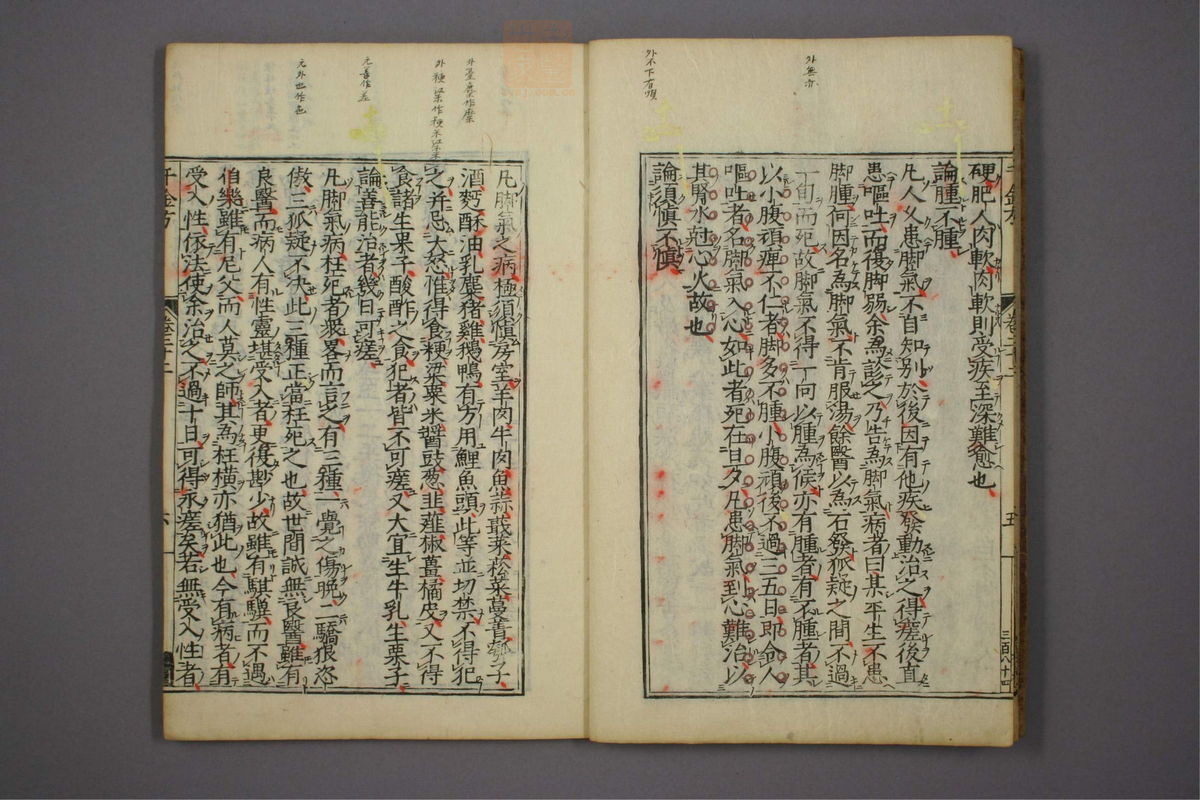 外無亦
外不下有頭
硬肥人肉軟肉軟則受疾至深難愈也
論腫不腫
凡人久患脚氣不自知別於後因有他疾發動治之得瘥後直
患嘔吐而復脚弱余為診之乃告為脚氣病者曰某平生不患
脚腫何因名為脚氣不肯服湯餘醫以為石發狐疑之間不過
一旬而死故脚氣不得一向以腫為候亦有腫者有不腫者其
以小腹頑痺不仁者脚多不腫小腹頑後不過三五日即令人
嘔吐者名脚氣入心如此者死在旦夕凡患脚氣到心難治以
其腎水尅心火故也
論須慎不慎
卷二十二
五
三百八十四
元善作差
元外也作色
凡脚氣之病極須慎房室羊肉牛肉魚蒜蕺菜菘菜蔓菁瓠子
酒麪酥油乳糜猪雞鵝鴨有方用鯉魚頭此等並切禁不得犯
之并忌大怒惟得食粳粱粟米醬豉葱韭薤椒薑橘皮又不得
食諸生果子酸酢之食犯者皆不可瘥又大宜生牛乳生栗子
論善能治者幾日可瘥
凡脚氣病枉死者衆畧而言之有三種一覺之傷晚二驕狠恣
傲三狐疑不決此三種正當枉死之也故世間誠無良醫雖有
良醫而病人有性靈堪受入者更復尠少故雖有騏驥而不遇
伯樂雖有尼父而人莫之師其為枉橫亦猶此也今有病者有
受入性依法使余治之不過十日可得永瘥矣若無受入性者
千金方
卷二十二
六